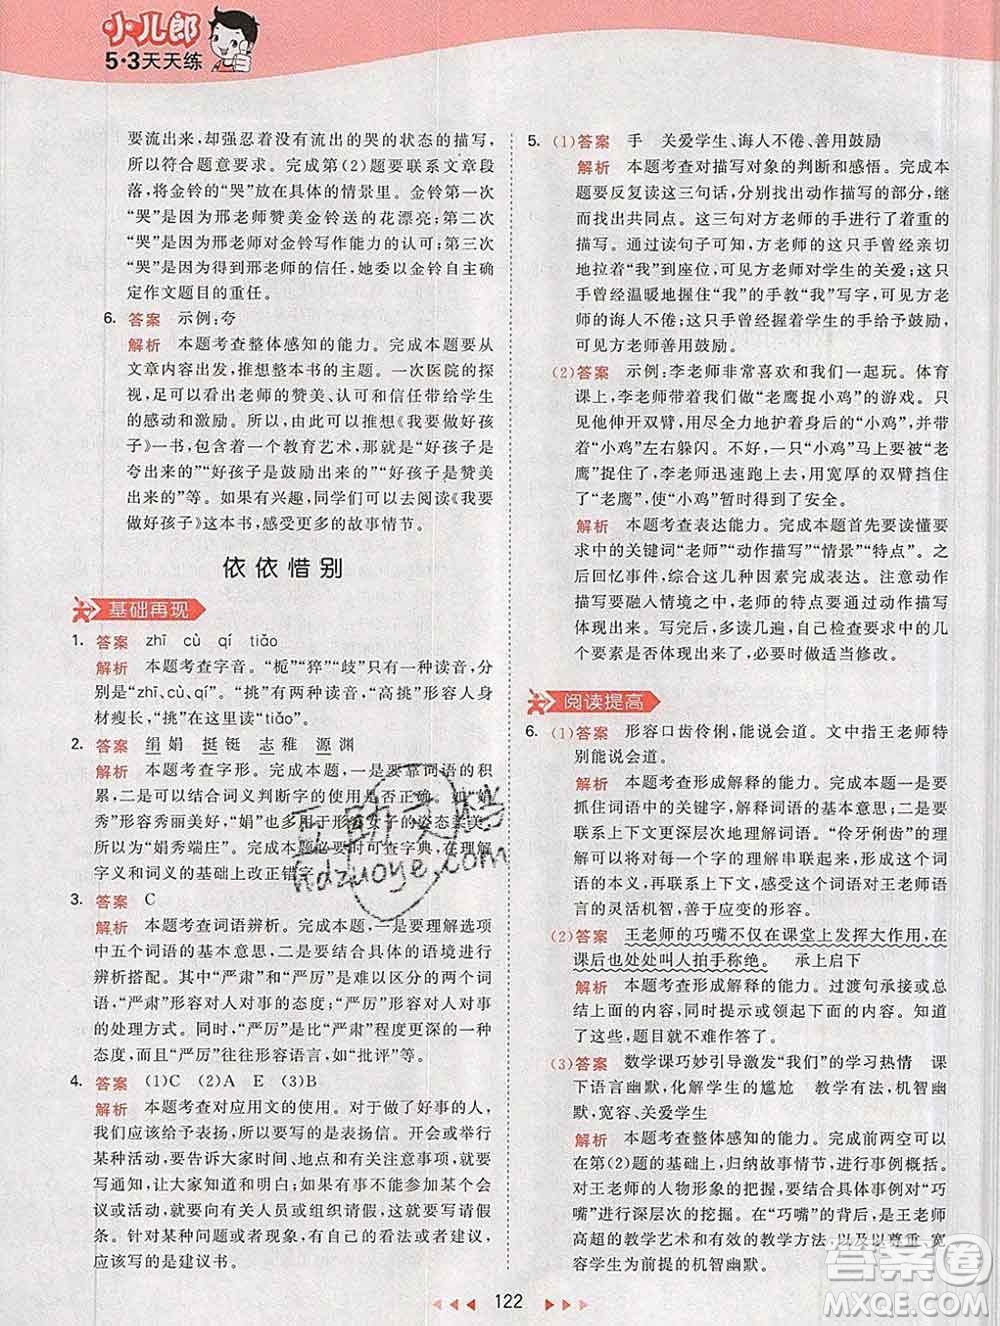 小儿郎
5·3天天练
要流出来,却强忍着没有流出的哭的状态的描写,
所以符合题意要求。完成第(2)题要联系文章段
落,将金铃的“哭”放在具体的情景里。金铃第一次
“哭”是因为邢老师赞美金铃送的花漂亮;第二次
“哭”是因为邢老师对金铃写作能力的认可;第三次
“哭”是因为得到邢老师的信任,她委以金铃自主确
定作文题目的重任。
6. 答案 示例:夸
解析 本题考查整体感知的能力。完成本题要从
文章内容出发,推想整本书的主题。一次医院的探
视,足可以看出老师的赞美、认可和信任带给学生
的感动和激励。所以,由此可以推想《我要做好孩
子》一书,包含着一个教育艺术,就是“好孩子是
夸出来的”“好孩子是鼓励出来的”“好孩子是赞美
出来的”等。如果有兴趣,同学们可以去阅读《我要
做好孩子》这本书,感受更多的故事情节。
依依惜别
基础再现
1. 答案 zhī cù qí tiǎo
解析 本题考查字音。“栀”“猝”“歧”只有一种读音,分
别是“zhī、cù、qí”。“挑”有两种读音,“高挑”形容人身
材瘦长,“挑”在这里读“tiǎo”。
2. 答案 绢 娟 挺 铤 志 稚 源 渊
解析 本题考查字形。完成本题,一是要靠词语的积
累,二是可以结合词义判断字的使用是否正确。如“娟
秀”形容秀丽美好,“娟”多用于形容女子的姿态柔美,
所以为“娟秀端庄”。本题必要时可查字典,在理解
字义和词义的基础上改正错字。
3. 答案 C
解析 本题考查词语辨析。完成本题,一是要理解选项
中五个词语的基本意思,二是要结合具体的语境进行
辨析搭配。其中“严肃”和“严厉”是难以区分的两个词
语,“严肃”形容对人对事的态度;“严厉”形容对人对事
的处理方式。同时,“严厉”是比“严肃”程度更深的一种
态度。而“严厉”往往形容语言,如“批评”等。
4. 答案 (1)C (2)A E (3)B
解析 本题考查对应用文的使用。对于做了好事的人,
我们应该给予表扬,所以要写的是表扬信。开会或举行
某种活动,要告诉大家时间、地点和有关注意事项,应
该写通知,让大家知道和明白;如果不能参加某个会
议或活动,就要向有关人员或组织请假,这时要写请假
条。针对某种问题或者现象,有自己的看法或者建议,
应该写的是建议书。
5. (1)答案 手 关爱学生、诲人不倦、善用鼓励
解析 本题考查对描写对象的判断和感悟。完成本
题要反复读这三句话,分别找出动作描写的部分,继
而找出共同点。这三句对方老师的手进行了着重的
描写。通过读句子可知,方老师的这只手曾经亲切
地拉着“我”到座位,可见方老师对学生的关爱;这只
手曾经温暖地握住“我”的手教“我”写字,可见方老
师的诲人不倦;这只手曾经用鼓掌的手给予鼓励,
可见方老师善用鼓励。
(2)答案 示例:李老师非常喜欢和我们一起玩。体育
课上,李老师和我们一起做“老鹰捉小鸡”的游戏。只
见他伸开双臂,全力以赴地护着身后的小鸡,带领着
“小鸡”左右躲闪。不好,一只“小鸡”动作慢了,被“老
鹰”捉住了,李老师迅速跑上前,用宽厚的双臂挡住
了“老鹰”,使“小鸡”暂时得到了安全。
解析 本题考查表达能力。完成本题首先要读懂要
求中的关键词“老师”“动作描写”“情景”“特点”。然
后回忆事件,综合这几种因素完成表达。注意动作
描写要融入情境之中,老师的特点要通过动作描写
体现出来。写完后,多读几遍,自己检查要求中的几
个要素是否体现了出来,必要时做适当修改。
阅读提高
6. (1)答案 形容口齿伶俐,能说会道。文中指王老师特
别能说会道。
解析 本题考查形成解释的能力。完成本题,一是要
抓住词语中的关键字,解释词语的基本意思;二是要
联系上下文更深层次地理解词语。“伶牙俐齿”的理解
可以就每一个字的理解串联起来,也就形成了这个词
语的本义,再联系上下文,可以体会到王老师语言
的灵活机智,善于应变的形容。
(2)答案 王老师的巧嘴不仅在课堂上发挥大作用,在
课后也处处叫人拍手称绝。 承上启下
解析 本题考查形成解释的能力。过渡句承接或者
总结上面的内容,同时提示或者引出下面的内容。知
道了这些,题目就不难作答了。
(3)答案 数学课巧妙引导激发“我们”的学习热情 课
下语言幽默,化解学生的尴尬 教学有法,机智幽
默,宽容、关爱学生
解析 本题考查整体感知的能力。完成前两空可以
在第(2)题的基础上,归纳故事情节,进行事例概括。
对王老师的人物形象的把握,要透过事例,对“巧
嘴”进行深层次的挖掘。在“巧嘴”的背后,是王老师
高超的教学艺术和有效的教学方法,以及以尊重、宽
容为前提的机智幽默。
互动文档
hdzuoye.com
122
答案圈
MXQE.COM